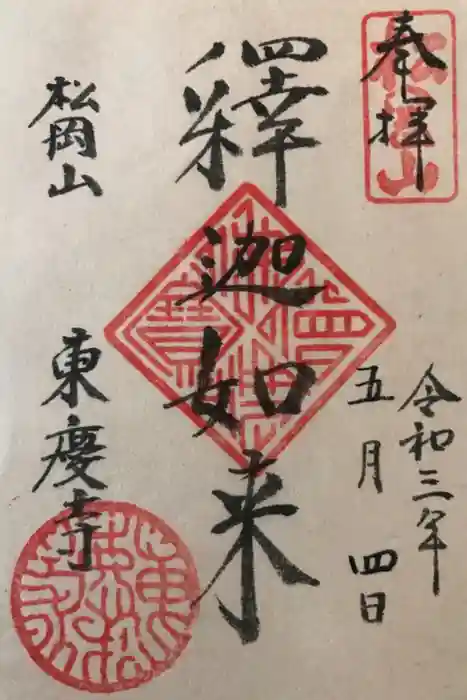 奉拝
松岡山
令和三年
五月四日
釋迦如来
松岡山
東慶寺